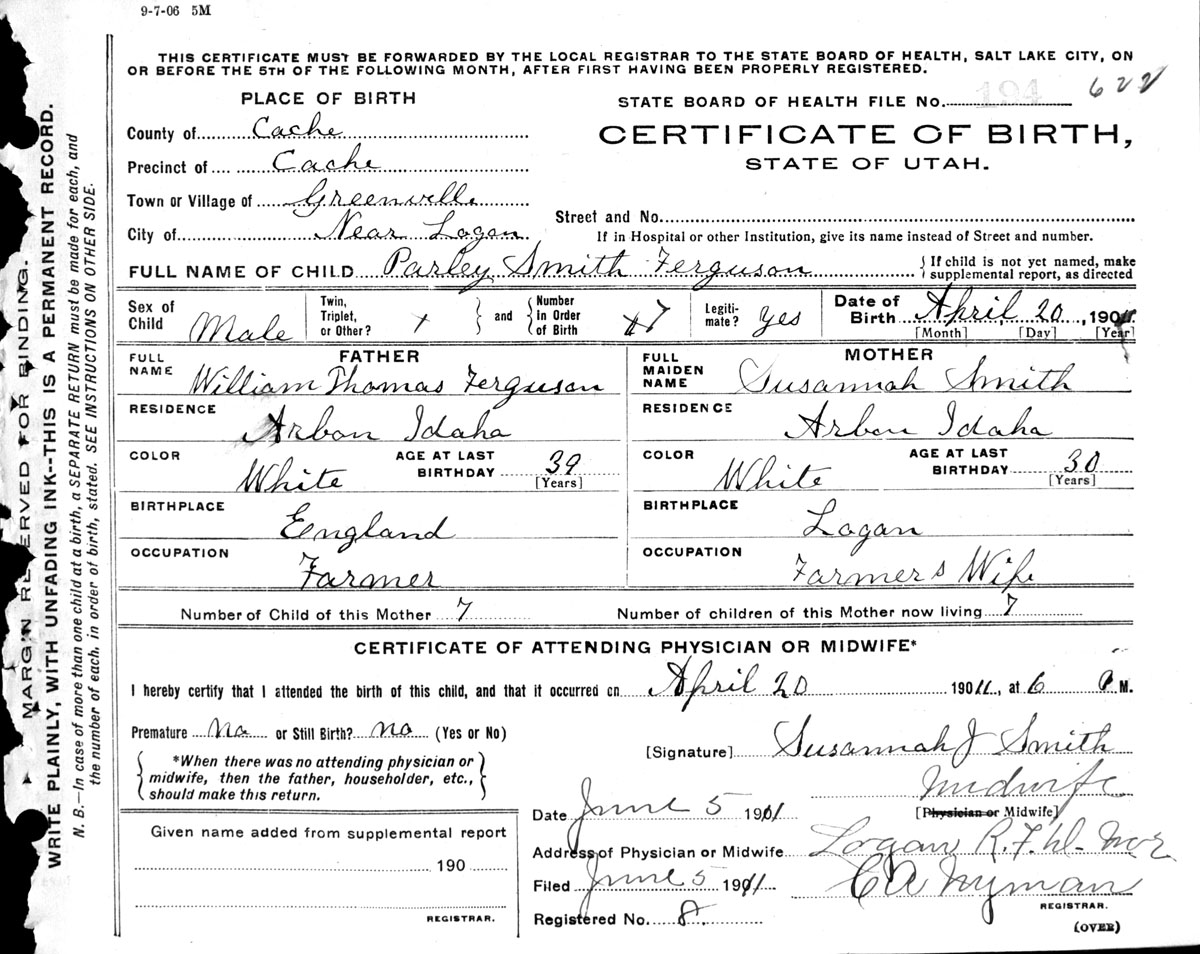 9-7-06 5M
THIS CERTIFICATE MUST BE FORWARDED BY THE LOCAL REGISTRAR TO THE STATE BOARD OF HEALTH, SALT LAKE CITY, ON
OR BEFORE THE 5TH OF THE FOLLOWING MONTH, AFTER FIRST HAVING BEEN PROPERLY REGISTERED.
PLACE OF BIRTH
STATE BOARD OF HEALTH FILE No. 194 622
County of Cache
CERTIFICATE OF BIRTH,
STATE OF UTAH.
Precinct of Cache
Town or Village of Greenville
Street and No.
City of Near Logan
If in Hospital or other Institution, give its name instead of Street and number.
FULL NAME OF CHILD Parley Smith Ferguson
If child is not yet named, make
supplemental report, as directed
Sex of Child Male
Twin, Triplet, or Other?
and Number in Order of Birth 7
Legitimate? Yes
Date of Birth April 20, 1911
[Month] [Day] [Year]
FATHER
FULL NAME William Thomas Ferguson
RESIDENCE Arbon Idaho
COLOR White
AGE AT LAST BIRTHDAY 39
[Years]
BIRTHPLACE England
OCCUPATION Farmer
MOTHER
FULL MAIDEN NAME Susannah Smith
RESIDENCE Arbon Idaho
COLOR White
AGE AT LAST BIRTHDAY 30
[Years]
BIRTHPLACE Logan
OCCUPATION Farmers Wife
Number of Child of this Mother 7 Number of children of this Mother now living 7
CERTIFICATE OF ATTENDING PHYSICIAN OR MIDWIFE*
I hereby certify that I attended the birth of this child, and that it occurred on April 20 1911, at 6 P M.
Premature No or Still Birth? no (Yes or No)
[Signature] Susannah J Smith
*When there was no attending physician or
midwife, then the father, householder, etc.,
should make this return.
Midwife
[Physician or Midwife]
Date June 5 1911
Given name added from supplemental report
190
REGISTRAR.
Address of Physician or Midwife Logan R.F.D. No 2
Filed June 5 1911 C A Nyman
REGISTRAR.
Registered No. 8
(OVER)
MARGIN RESERVED FOR BINDING.
WRITE PLAINLY, WITH UNFADING INK--THIS IS A PERMANENT RECORD.
N. B.—In case of more than one child at a birth, a SEPARATE RETURN must be made for each, and
the number of each, in order of birth, stated. SEE INSTRUCTIONS ON OTHER SIDE.